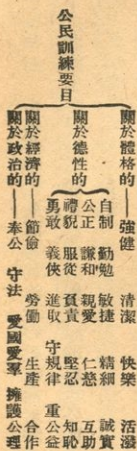 公民訓練要目
關於體格的——強健 清潔 快樂 活潑
關於德性的
自制 勤勉 敏捷 精細 誠實
公正 謙和 親愛 仁慈 互助
禮貌 服從 負責 堅忍 知恥
勇敢 義俠 進取 守規律 重公益
關於經濟的——節儉 勞働 生產 合作
關於政治的——奉公 守法 愛國愛羣 擁護公理